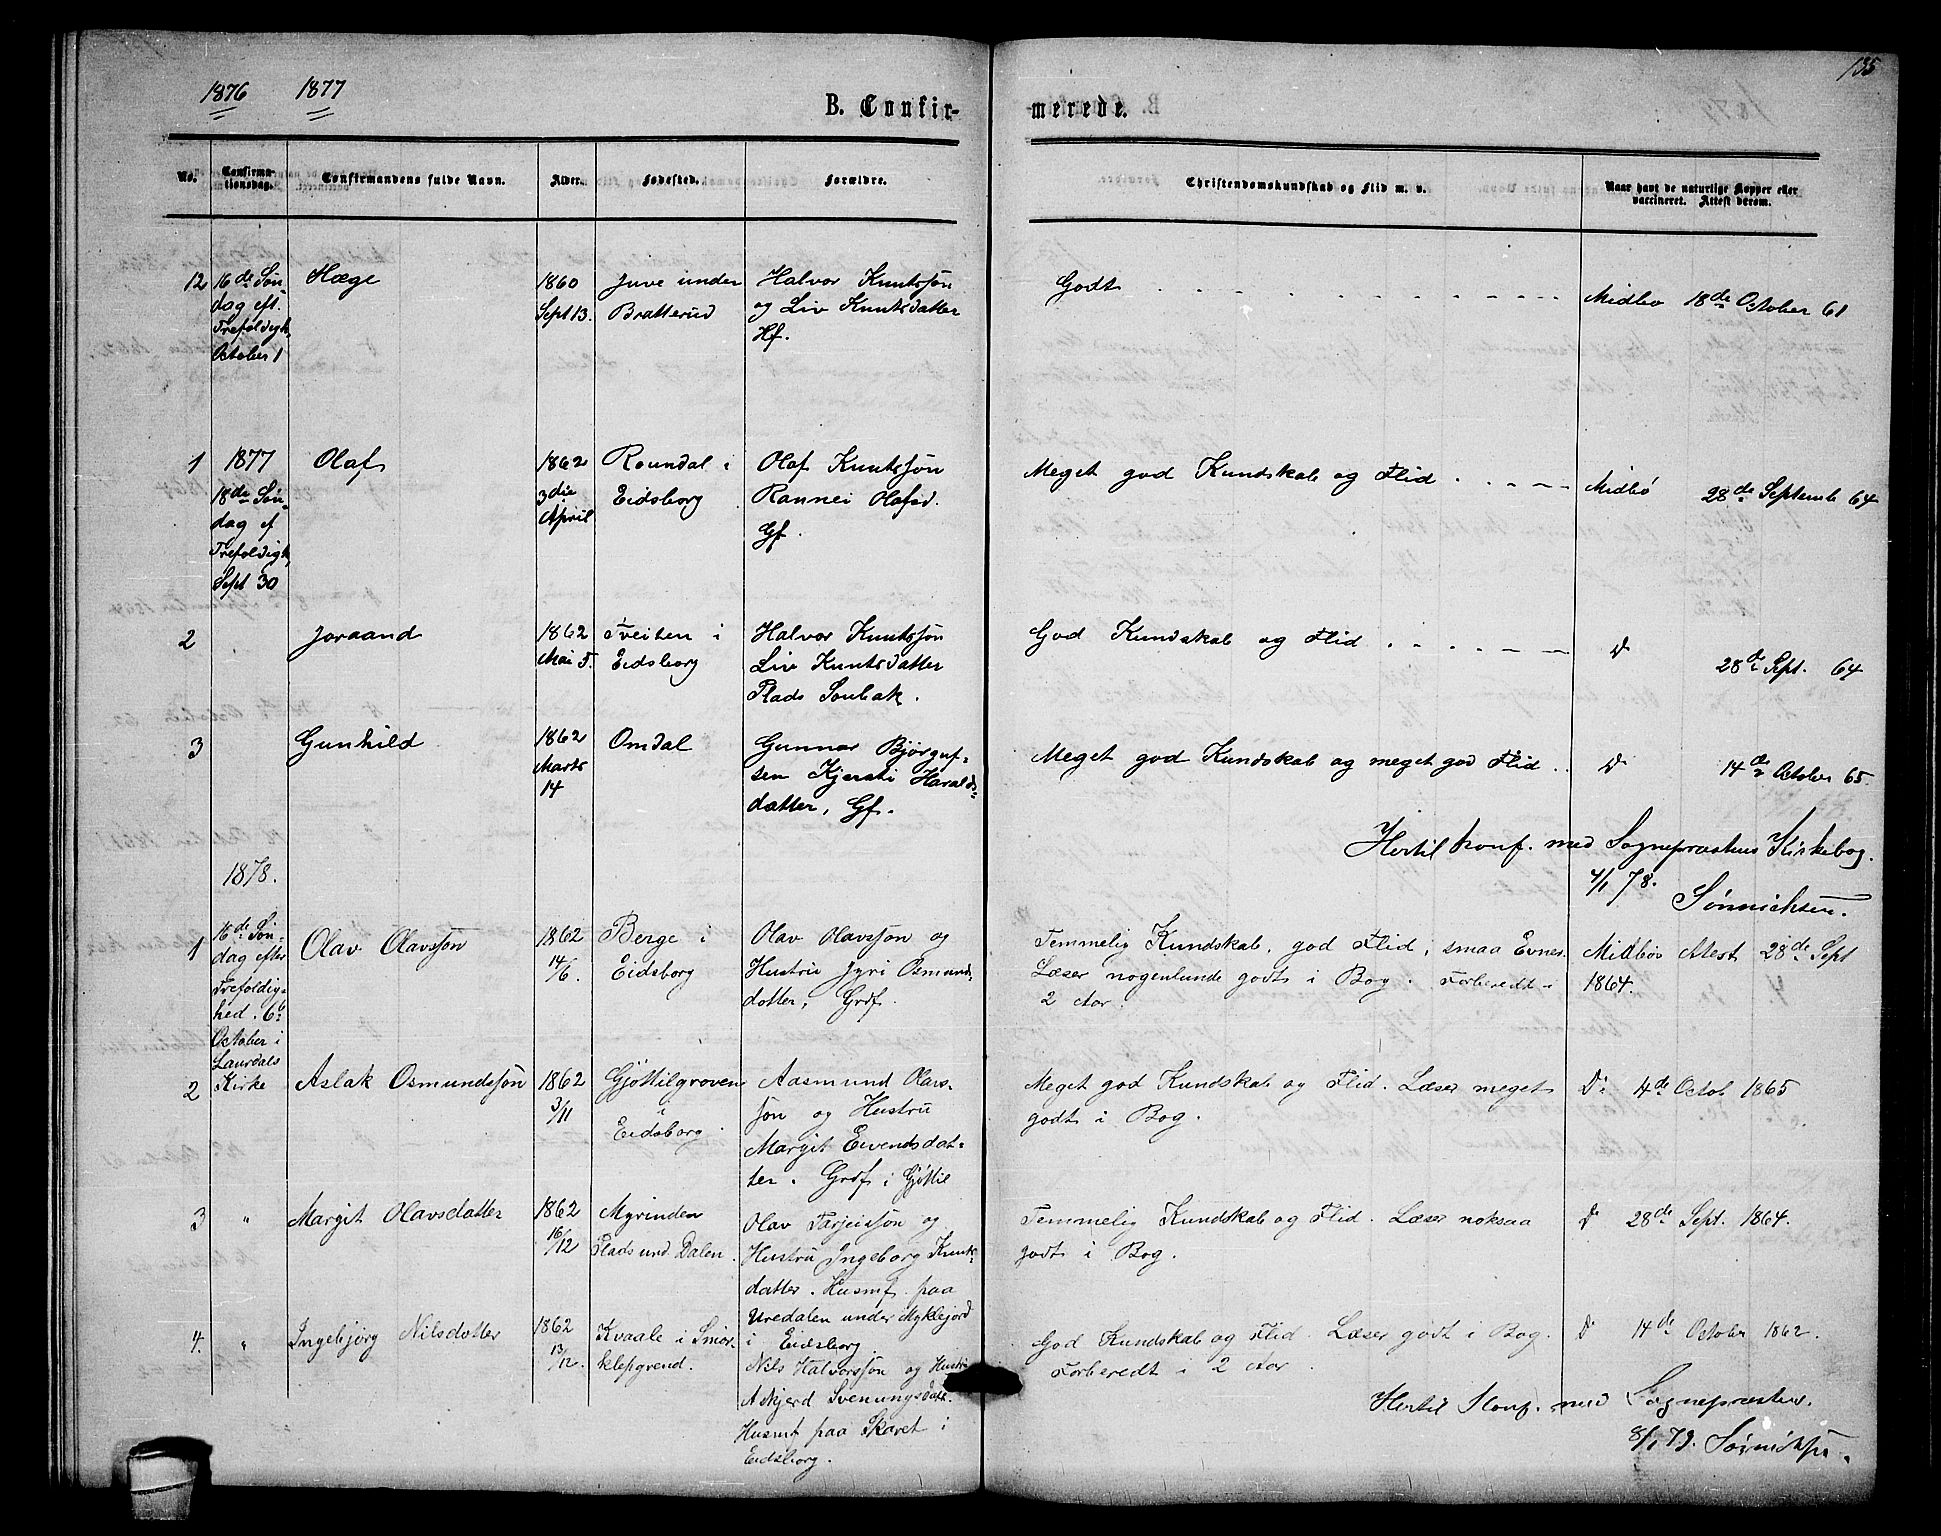 1876 1877
135
B. Confir-
merede.
No.
Confirma-
tionsdag.
Confirmandens fulde Navn.
Alder.
Fødested.
Forældre.
Christendomskundskab og Flid m. v.
Naar havt de naturlige Kopper eller
vaccineret. Attest derom.
12 16de Søn-
dag eft.
Trefoldigh.
October 1
Hæge
1860
Sept 13.
Juve under
Bratterud
Halvor Knutsjøn
og Liv Knutsdatter
Hf.
Godt
Midbø 18de October 61
1 1877
18de Søn-
dag ef
Trefoldigh.
Sept 30
Olaf
1862
3die
April
Roundal i
Eidsborg
Olaf Knutsjøn
Rannei Olafsd.
Gf.
Meget god Kundskab og Flid
Midbø 28de Septemb 64
2
Joraand
1862
Mai 5.
Tveiten i
Eidsborg
Halvor Knutsjøn
Liv Knutsdatter
Plads Soubak.
God Kundskab og Flid
Do 28de Sept. 64
3
Gunhild
1862
Marts
14
Omdal
Gunnar Bjørguf-
sen Kjersti Harald-
datter, Gf.
Meget god Kundskab og meget god Flid
Do 14de October 65.
Hertil konf. med Sognepræstens Kirkebog.
4/1 78.
Sønnichsen.
1878.
1 16de Søn-
dag efter
Trefoldig-
hed. 6te
October i
Laurdals
Kirke
Olav Olavsjøn
1862
14/6.
Berge i
Eidsborg
Olav Olavsjøn og
Hustru Jyri Osmund-
datter, Grdf.
Temmelig Kundskab, god Flid, smaa Evner.
Læser nogenlunde godt i Bog. Forberedt i
2 Aar.
Midbøs Atest 28de Sept
1864.
2
Aslak Osmundssøn
1862
3/11
Gjøttilgroven
i
Eidsborg.
Aasmund Olavs-
søn og Hustru
Margit Eivendsdat-
ter. Grdf i Gjøttil
Meget god Kundskab og Flid. Læser meget
godt i Bog.
Do: 4de Octob 1865
3 "
Margit Olavsdatter
1862
16/12
Myrinden
Plads und. Dalen.
Olav Tarjeisjøn og
Hustru Ingeborg Knut-
datter. Husmf. paa
Uredalen under Myklejord
i Eidsborg.
Temmelig Kundskab og Flid. Læser noksaa
godt i Bog.
Do 28de Sept. 1864.
4. "
Ingebjørg Nilsdatter
1862
13/12.
Kvaale i Smør-
klepgrend.
Nils Halvorsjøn og Hustru
Svenungsdatt.
Husmf paa Skaret i
Eidsborg.
God Kundskab og Flid. Læser godt i Bog.
Forberedt i 2 Aar.
Do 14de October 1862.
Hertil Konf. med Sognepræstens.
8/1 79. Sønnichsen.